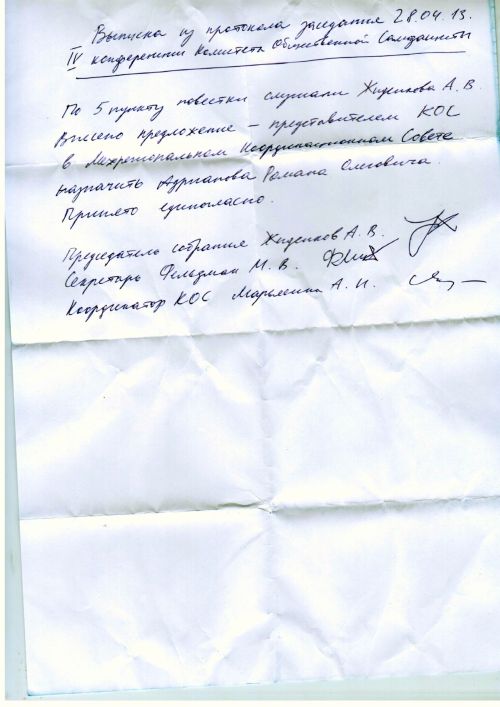 Выписка из протокола заседания 28.04.13.
IV конференции Комитета Общественной Солидарности
По 5 пункту повестки слушали Жиденкова А. В.
Внесено предложение – представителем КОС
в Межрегиональном Координационном Совете
назначить Адрианова Романа Олеговича.
Принято единогласно.
Председатель собрания Жиденков А. В.
Секретарь Фельдман М. В.
Координатор КОС Марьясина А. И.